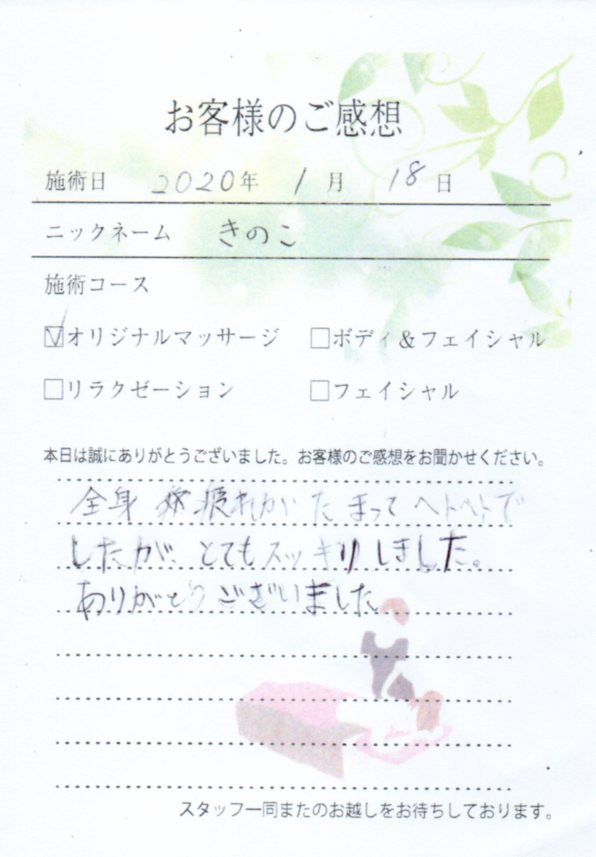 お客様のご感想
施術日 2020年 1月 18日
ニックネーム きのこ
施術コース
☑オリジナルマッサージ □ボディ&フェイシャル
□リラクゼーション □フェイシャル
本日は誠にありがとうございました。お客様のご感想をお聞かせください。
全身 疲れがたまってヘトヘトで
したが、とてもスッキリしました。
ありがとうございました
スタッフ一同またのお越しをお待ちしております。